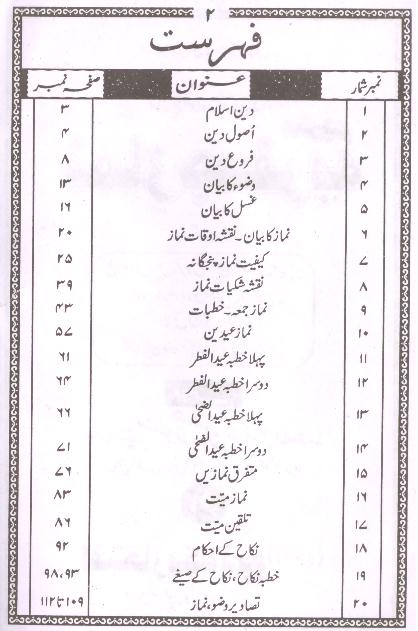 ۲
فہرست
نمبر شمار عنوان صفحہ نمبر
۱ دین اسلام ۳
۲ اُصول دین ۴
۳ فروع دین ۸
۴ وضوء کا بیان ۱۳
۵ غسل کا بیان ۱۶
۶ نماز کا بیان ۔ نقشہ اوقات نماز ۲۰
۷ کیفیت نماز پنجگانہ ۲۵
۸ نقشہ شکیات نماز ۳۹
۹ نماز جمعہ ۔ خطبات ۴۳
۱۰ نماز عیدین ۵۷
۱۱ پہلا خطبہ عید الفطر ۶۱
۱۲ دوسرا خطبہ عید الفطر ۶۴
۱۳ پہلا خطبہ عید الضحیٰ ۶۶
۱۴ دوسرا خطبہ عید الضحیٰ ۷۱
۱۵ متفرق نمازیں ۷۶
۱۶ نماز میّت ۸۳
۱۷ تلقین میّت ۸۶
۱۸ نکاح کے احکام ۹۲
۱۹ خطبہ نکاح، نکاح کے صیغے ۹۳،۹۸
۲۰ تصاویر وضو، نماز ۱۰۹ تا ۱۱۲